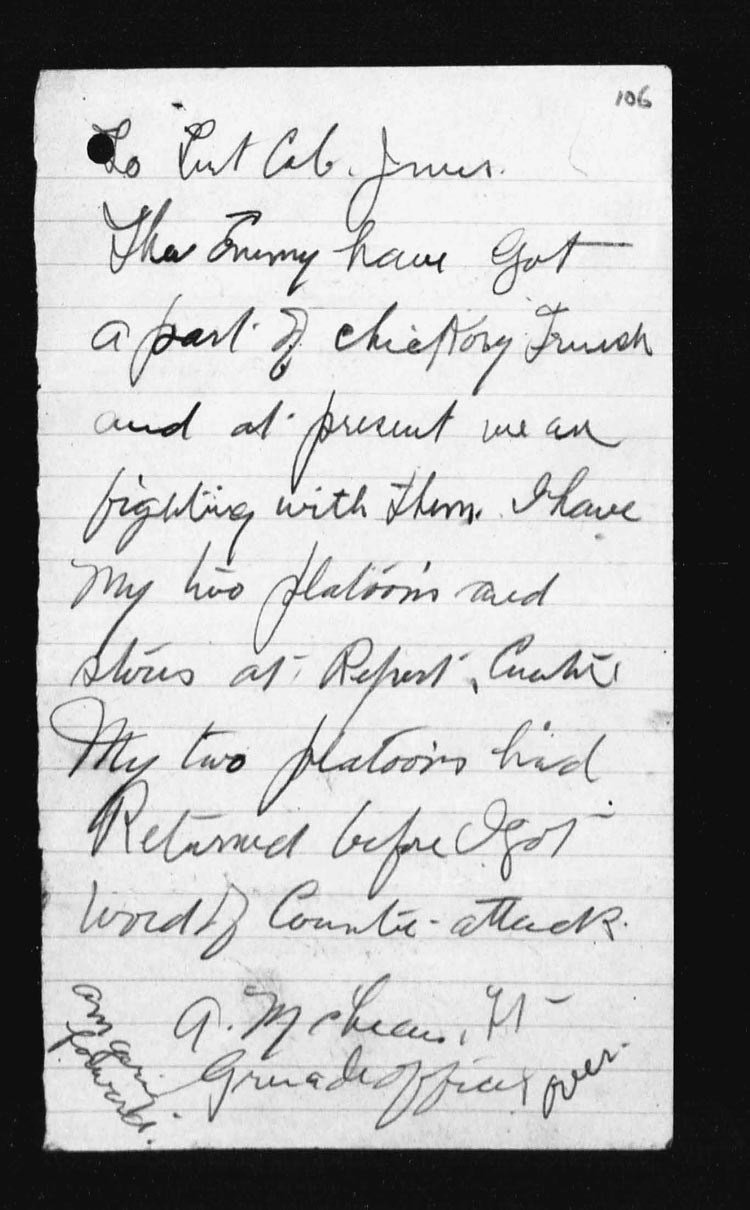 106
To Lieut Col. Jones.
The Enemy have got
a part of chickory Trench
and at present we are
fighting with them. I have
My two platoons and
stores at Report Centre
My two platoons had
Returned before I got
word of Counter-attack.
A. McLean, Lt
Grenade officer
am going
forward.
over.